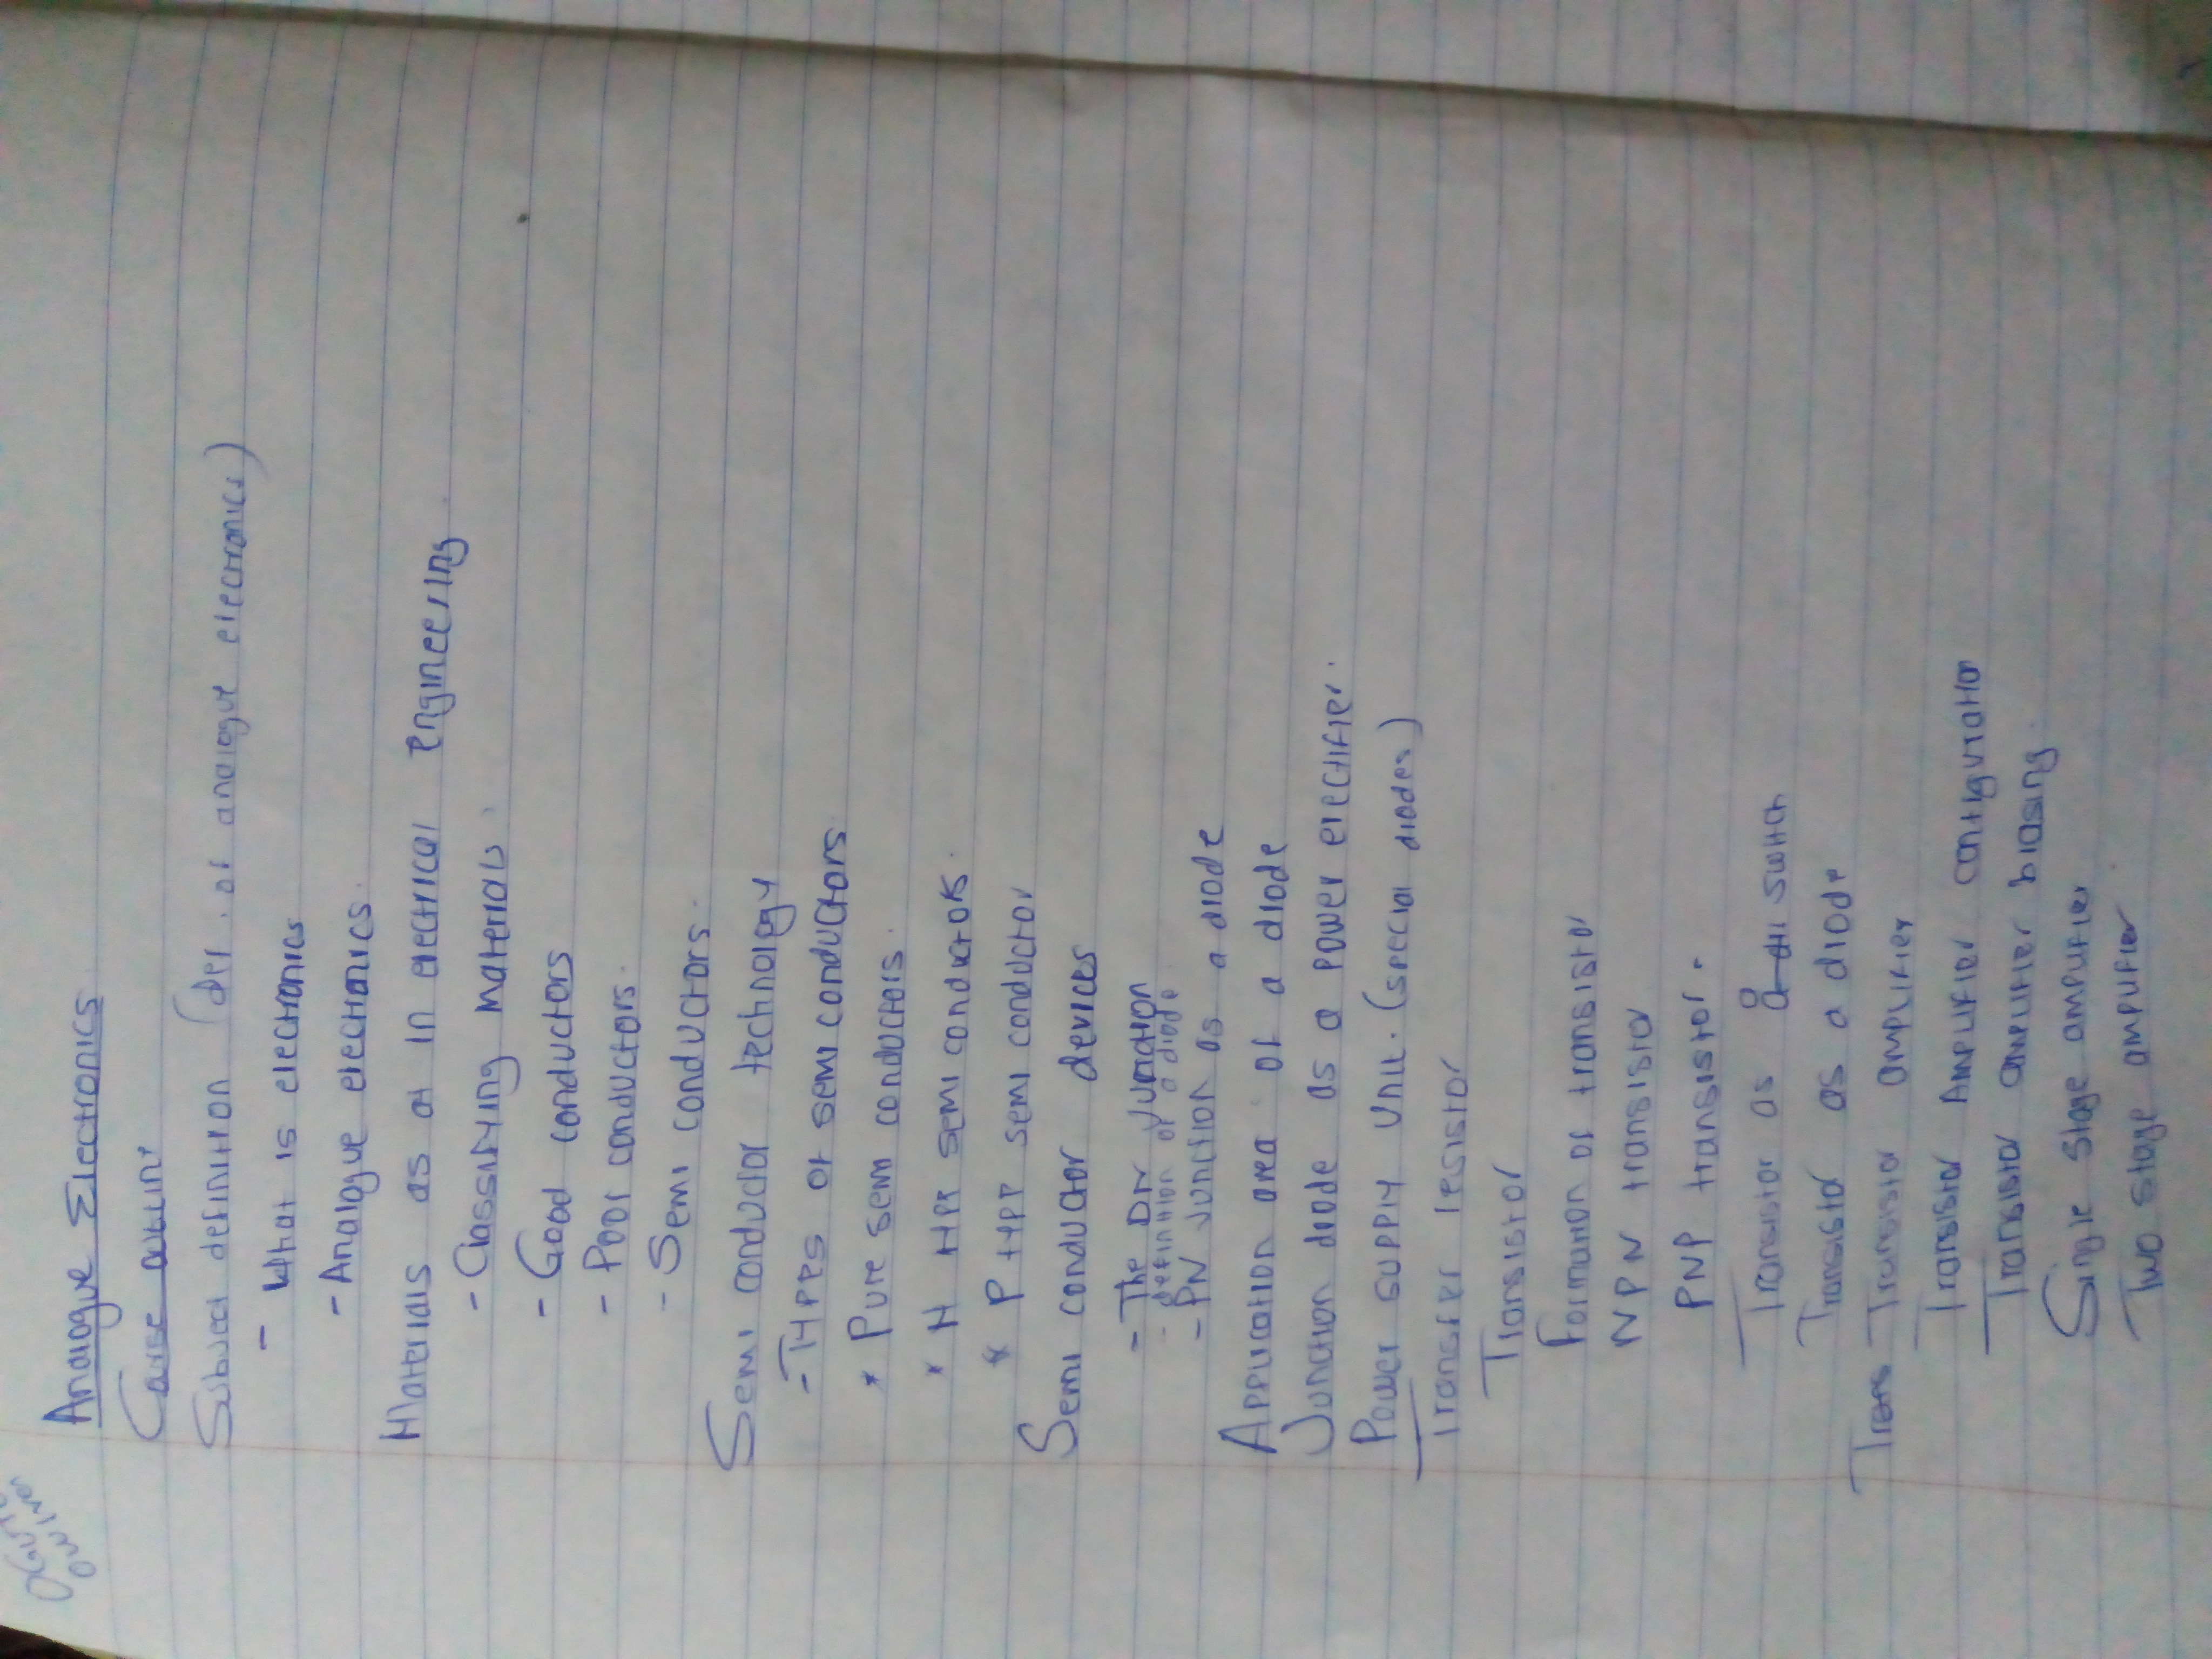 Analogue Electronics
Course outline
Subject definition (Def. of analogue electronics)
- What is electronics
- Analogue electronics.
Materials as at in electrical Engineering
- Classifying materials
- Good conductors
- Poor conductors.
- Semi conductors.
Semi conductor technology
- Types of semi conductors
* Pure semi conductors.
* N type semi conductors.
* P type semi conductor
Semi conductor devices
- The PN junction
- definition of a diode
- PN junction as a diode
Application area of a diode
Junction diode as a power erectifier.
Power supply unit. (special diodes)
Transfer resistor
Transistor
Formation of transistor
NPN transistor
PNP transistor.
Transistor as a switch
Transistor as a diode
Trans Transistor amplifier
Transistor Amplifier configuration
Transistor amplifier biasing.
Single stage amplifier
Two stage amplifier